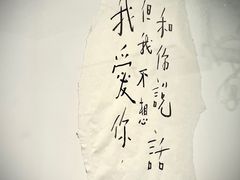 我愛你，
但我不想
和你說話